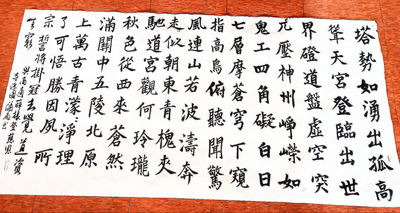 塔勢如湧出孤高
聳天宮登臨出世
界磴道盤虛空突
兀壓神州崢嶸如
鬼工四角礙白日
七層摩蒼穹下窺
指高鳥俯聽聞驚
風連山若波濤奔
走似朝東青槐夾
馳道宮觀何玲瓏
秋色從西來蒼然
滿關中五陵北原
上萬古青濛〻淨理
了可悟勝因夙所
宗誓將掛冠去覺道資
無窮